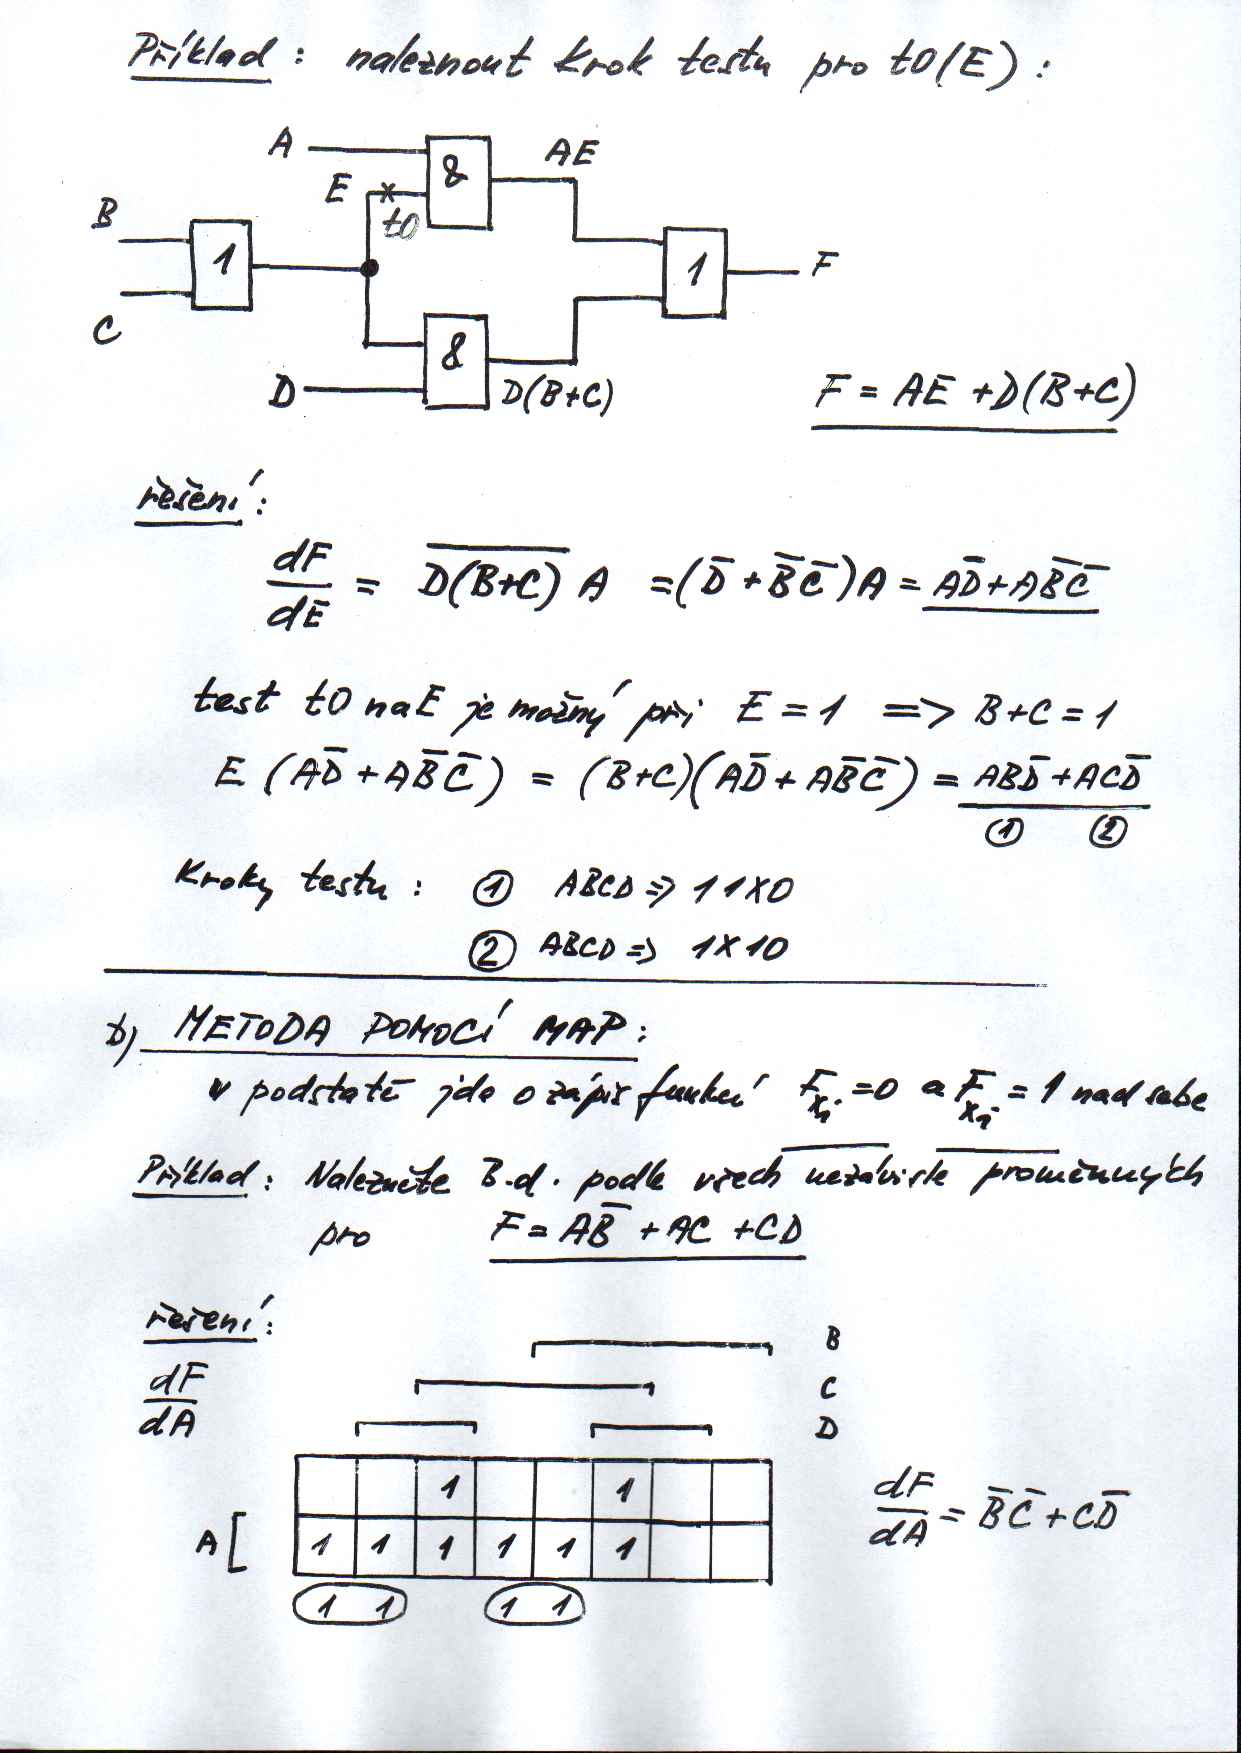 Příklad : naleznout krok testu pro t0(E) :
A
AE
&
E
t0
B
1
1
F
C
&
D
D(B+C)
F = AE + D(B+C)
řešení :
dF/dE = \overline{D(B+C)} A = (D̄ + B̄ C̄)A = AD̄ + AB̄C̄
test t0 na E je možný při E = 1 => B+C = 1
E (AD̄ + AB̄C̄) = (B+C)(AD̄ + AB̄C̄) = ABD̄ + ACD̄
① ②
Kroky testu : ① ABCD => 11X0
② ABCD => 1X10
b) METODA POMOCÍ MAP :
v podstatě jde o zápis funkcí F_{xi}=0 a F_{xi}=1 nad sebe
Příklad : Nalezněte B.d. podle všech nezávisle proměnných
pro F = AB̄ + AC + CD
řešení :
B
dF/dA
C
D
1 1
A
1 1 1 1 1 1
dF/dA = B̄C̄ + CD̄
1 1 1 1